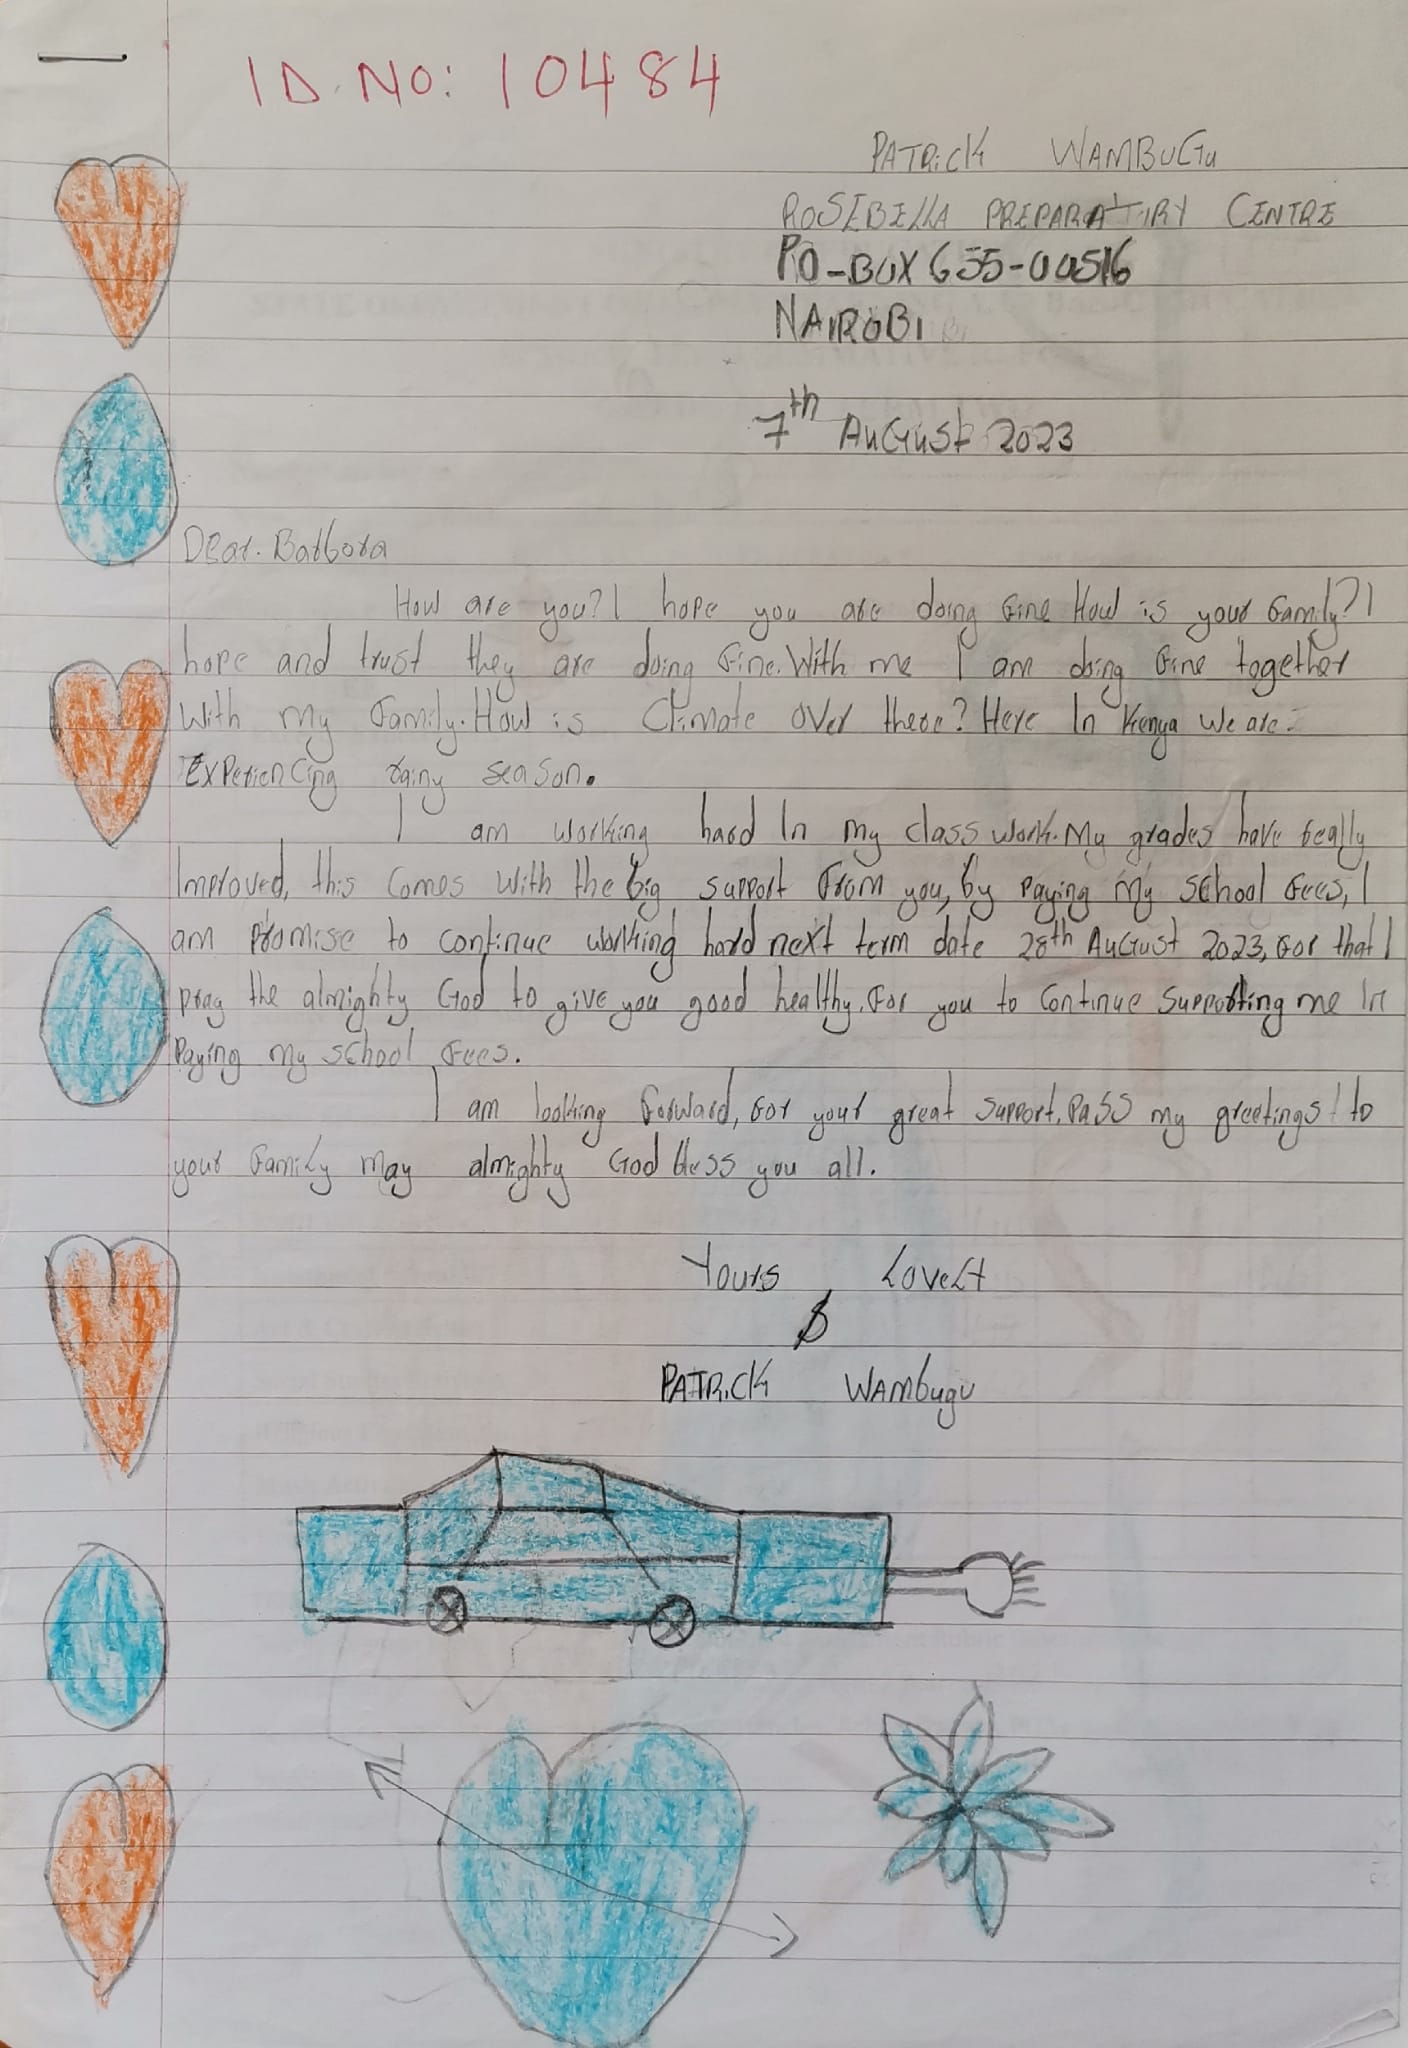 ID. NO: 10484
PATRICK WAMBUGU
ROSEBELLA PREPARATIRY CENTRE
PO-BOX 655-00516
NAIROBI
7th AUGUST 2023
Dear. Barbora
How are you? I hope you are doing fine How is your family? I
hope and trust they are doing fine. With me I am doing fine together
With my family. How is Climate over there? Here In Kenya We are
Experiencing rainy season.
I am working hard In my class work. My grades have really
Improved, this Comes with the big support from you, by paying my school fees, I
am promise to continue working hard next term date 28th August 2023, for that I
pray the almighty God to give you good healthy. For you to Continue Supporting me In
Paying my school fees.
I am looking forward, for your great support. Pass my greetings to
your family may almighty God bless you all.
Yours Lovely
PATRICK WAMbugu